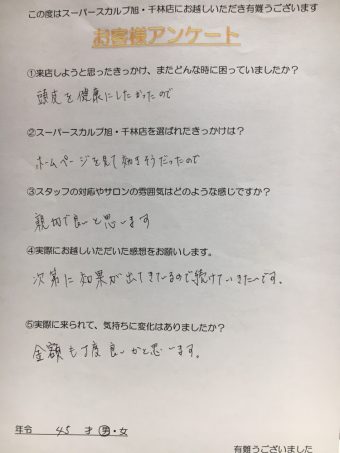 この度はスーパースカルプ旭・千林店にお越しいただき有難うございます
お客様アンケート
①来店しようと思ったきっかけ、またどんな時に困っていましたか？
頭皮を健康にしたかったので
②スーパースカルプ旭・千林店を選ばれたきっかけは？
ホームページを見て効きそうだったので
③スタッフの対応やサロンの雰囲気はどのような感じですか？
親切で良いと思います
④実際にお越しいただいた感想をお願いします。
次第に効果が出てきているので、続けていきたいです。
⑤実際に来られて、気持ちに変化はありましたか？
金額も丁度良いかと思います。
年令 45 才 男・女
有難うございました